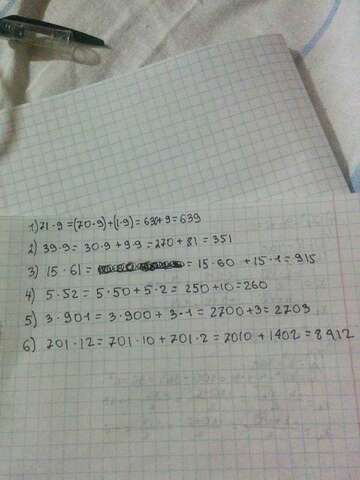 1) 71·9 = (70·9)+(1·9) = 630+9 = 639
2) 39·9 = 30·9 + 9·9 = 270 + 81 = 351
3) 15·61 = = 15·60 + 15·1 = 915
4) 5·52 = 5·50 + 5·2 = 250 + 10 = 260
5) 3·901 = 3·900 + 3·1 = 2700 + 3 = 2703
6) 701·12 = 701·10 + 701·2 = 7010 + 1402 = 8412